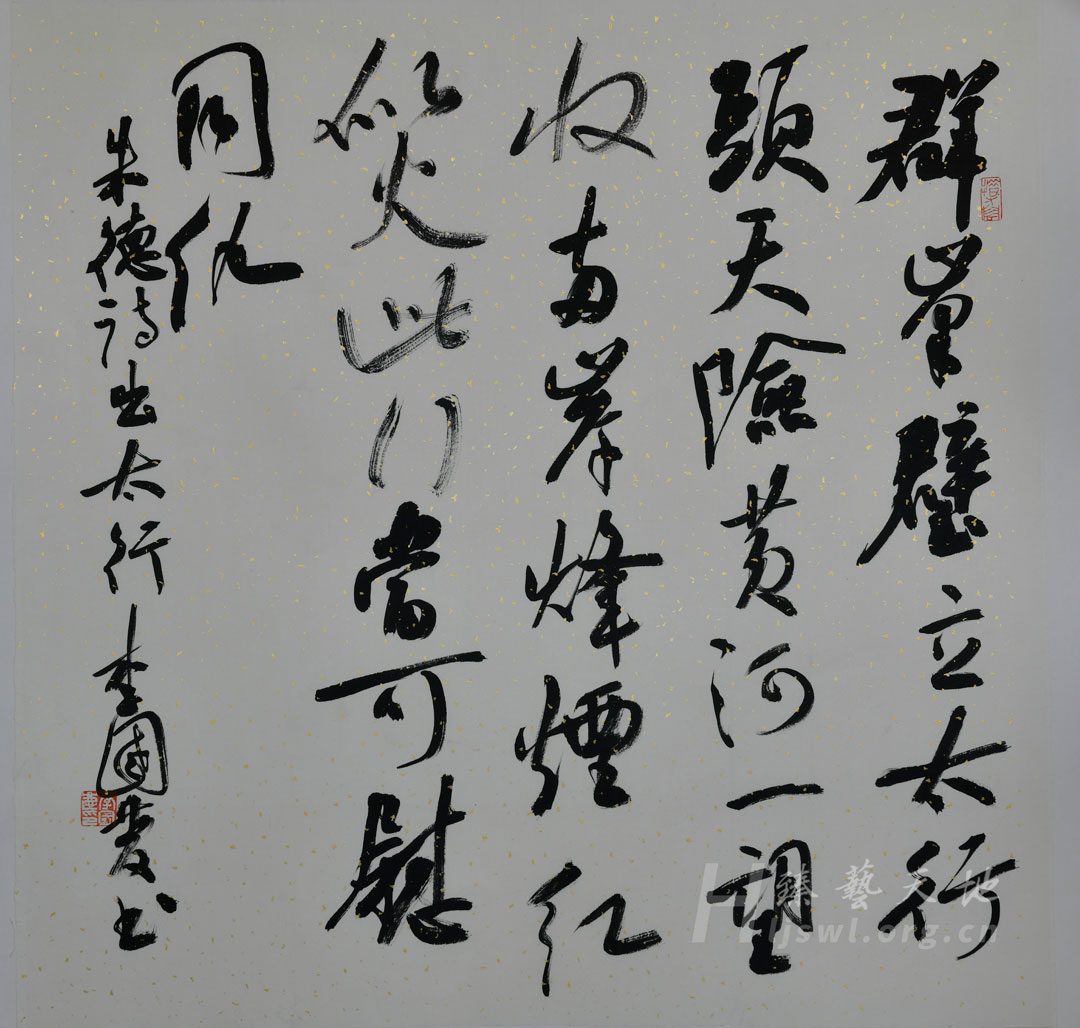 群峯壁立太行
頭天險黄河一望
收两岸烽煙红
似火此行當可慰
同仇
朱德诗出太行 李國书
臻藝天地
Hljswl.org.cn